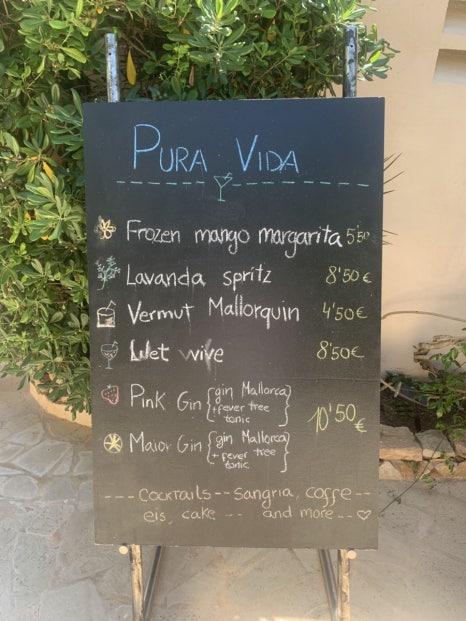 PURA VIDA
Frozen mango margarita 5'50
Lavanda spritz 8'50€
Vermut Mallorquin 4'50€
Wet wive 8'50€
Pink Gin {gin Mallorca
+fever tree
tonic}
10'50€
Maior Gin {gin Mallorca
+ fever tree
tonic}
--- Cocktails -- sangria, coffe --
eis, cake -- and more -- ♡